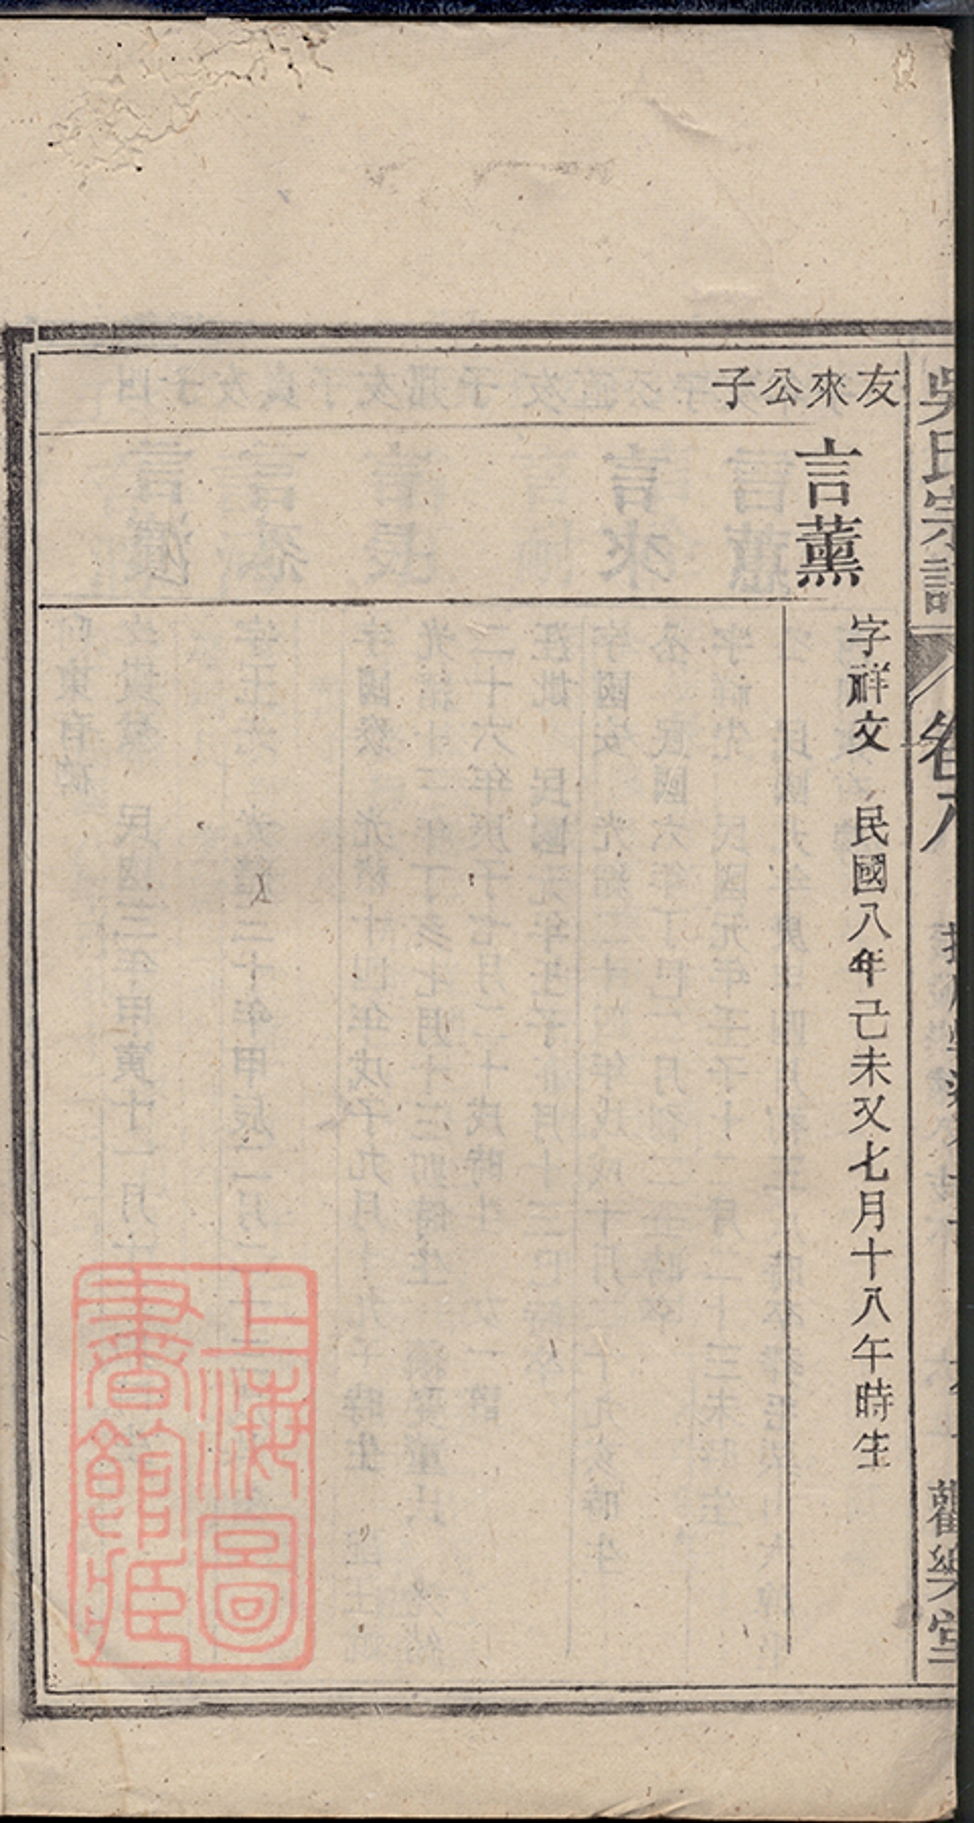 吳氏宗譜
卷八
觀樂堂
友來公子
言薰
字祥文 民國八年己未又七月十八午時生
上海圖
書館藏